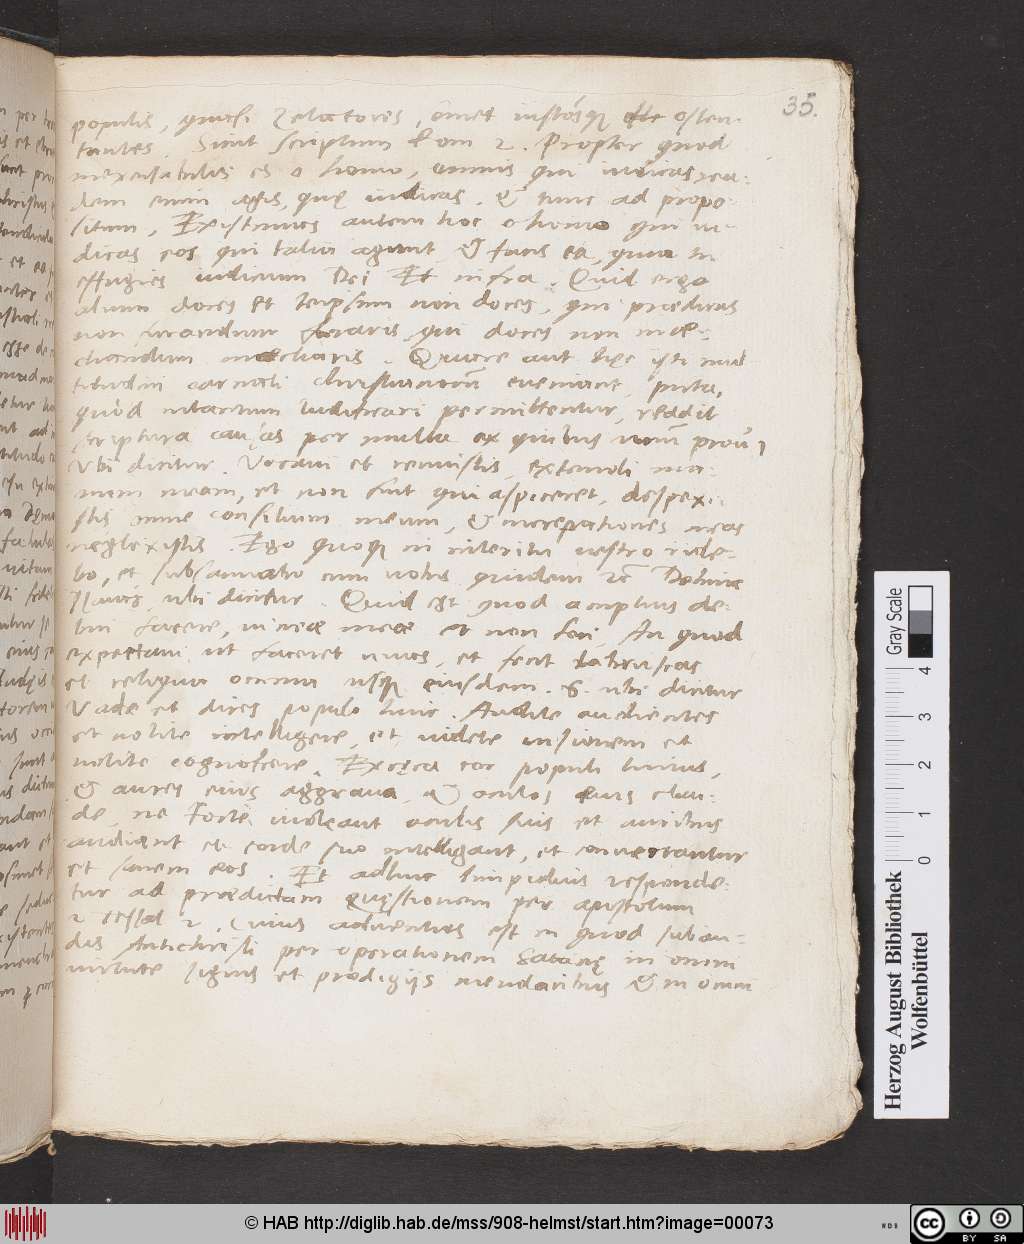 35.
populis, quasi Zelatores, om̄et iustósq esse osten-
tantes. Sicut scriptum Rom 2. Propter quod
inexcusabilis es o homo, omnis qui iudicas, ea-
dem enim agis, quę iudicas. Et tunc ad propo-
situm, Existimas autem hoc o homo qui iu-
dicas eos qui talia agunt, & facis ea, quia tu
effugies iudicium Dei Et infra. Quid ergo
alium doces et teipsum non doces, qui prædicas
non furandum furaris, qui doces non mœ-
chandum mœcharis. Quare aut hęc isti mul
titudini carnali christianorū eveniant, puta,
quòd intantum ludificari permittentur, reddit
scriptura causas per multa ex quibus unū prou̅ 1
Vbi dicitur. Vocaui et renuistis, extendi ma-
num meam, et non fuit qui aspiceret, despexi-
stis omne consilium meum, & increpationes meas
neglexistis. Ego quoq in interitu vestro ride-
bo, et subsannabo cum vobis quidem
ubi dicitur. Quid est quod amplius de-
bui facere, vineæ meæ et non feci, An quod
expectaui ut faceret uuas, et fecit labruscas
et reliqua omnia usq eiusdem. 6. ubi dicitur
Vade et dices populo huic. Audite audientes
et nolite intelligere, et uidete uisionem et
nolite cognoscere. Excęca cor populi huius,
& aures eius aggraua, & oculos eius clau-
de, ne fortè uideant oculis suis et auribus
audiant et corde suo intelligant, et conuertantur
et sanem eos. Et adhuc limpidius responde-
tur ad prædictam quęstionem per apostolum
2 Tessal 2. Cuius aduentus est in quod subau-
dis Antichristi per operationem Satanę in omni
virtute signis et prodigijs mendacibus & in omni
Gray Scale
0 1 2 3 4
Herzog August Bibliothek
Wolfenbüttel
© HAB http://diglib.hab.de/mss/908-helmst/start.htm?image=00073
WDB
cc BY SA